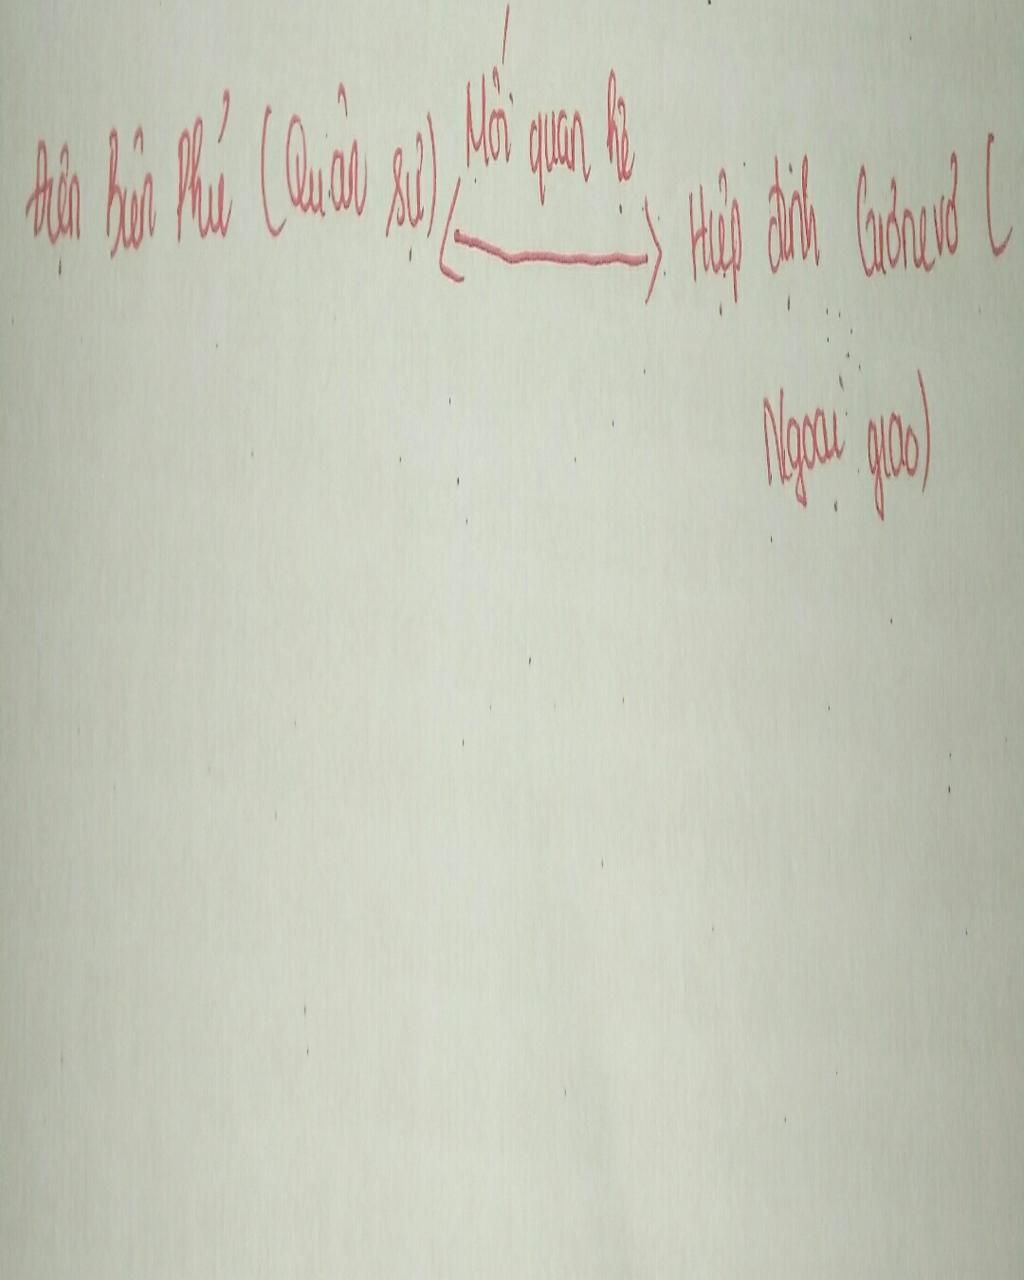 Điện Biên Phủ (Quân sự) Mối quan hệ Hiệp định Giơnevơ (
Ngoại giao)